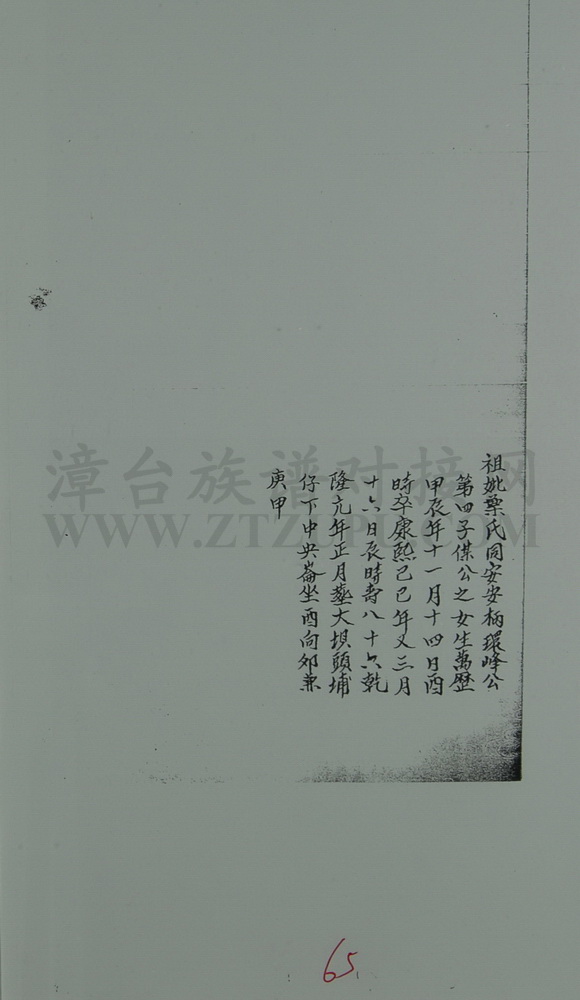 祖妣葉氏同安安柄環峰公
第四子傑公之女生萬歷
甲辰年十一月十四日酉
時卒康熙己巳年又三月
十六日辰時壽八十六乾
隆元年正月塟大坝頭埔
仔下中央崙坐酉向夘兼
庚甲
漳台族谱对接网
WWW.ZTZUPU.COM
65